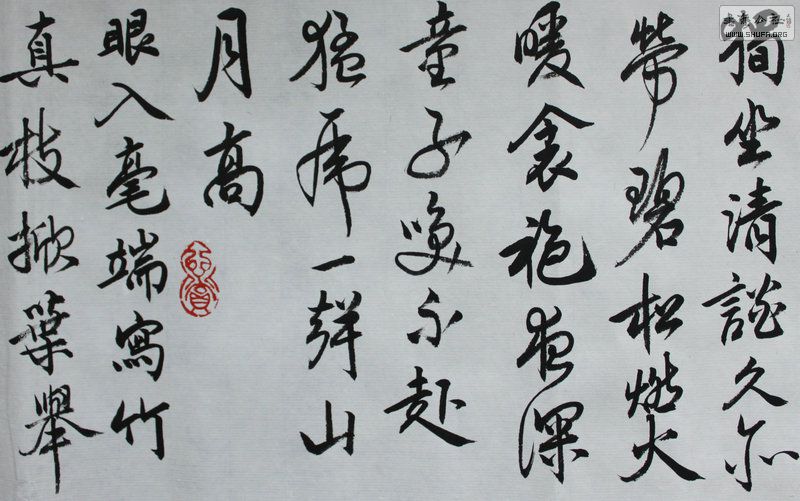 獨坐清談久亦
勞碧松燃火
暖衾袍夜深
童子喚不起
猛虎一聲山
月高
眼入毫端寫竹
真枝掀葉舉
WWW.SHUFA.ORG